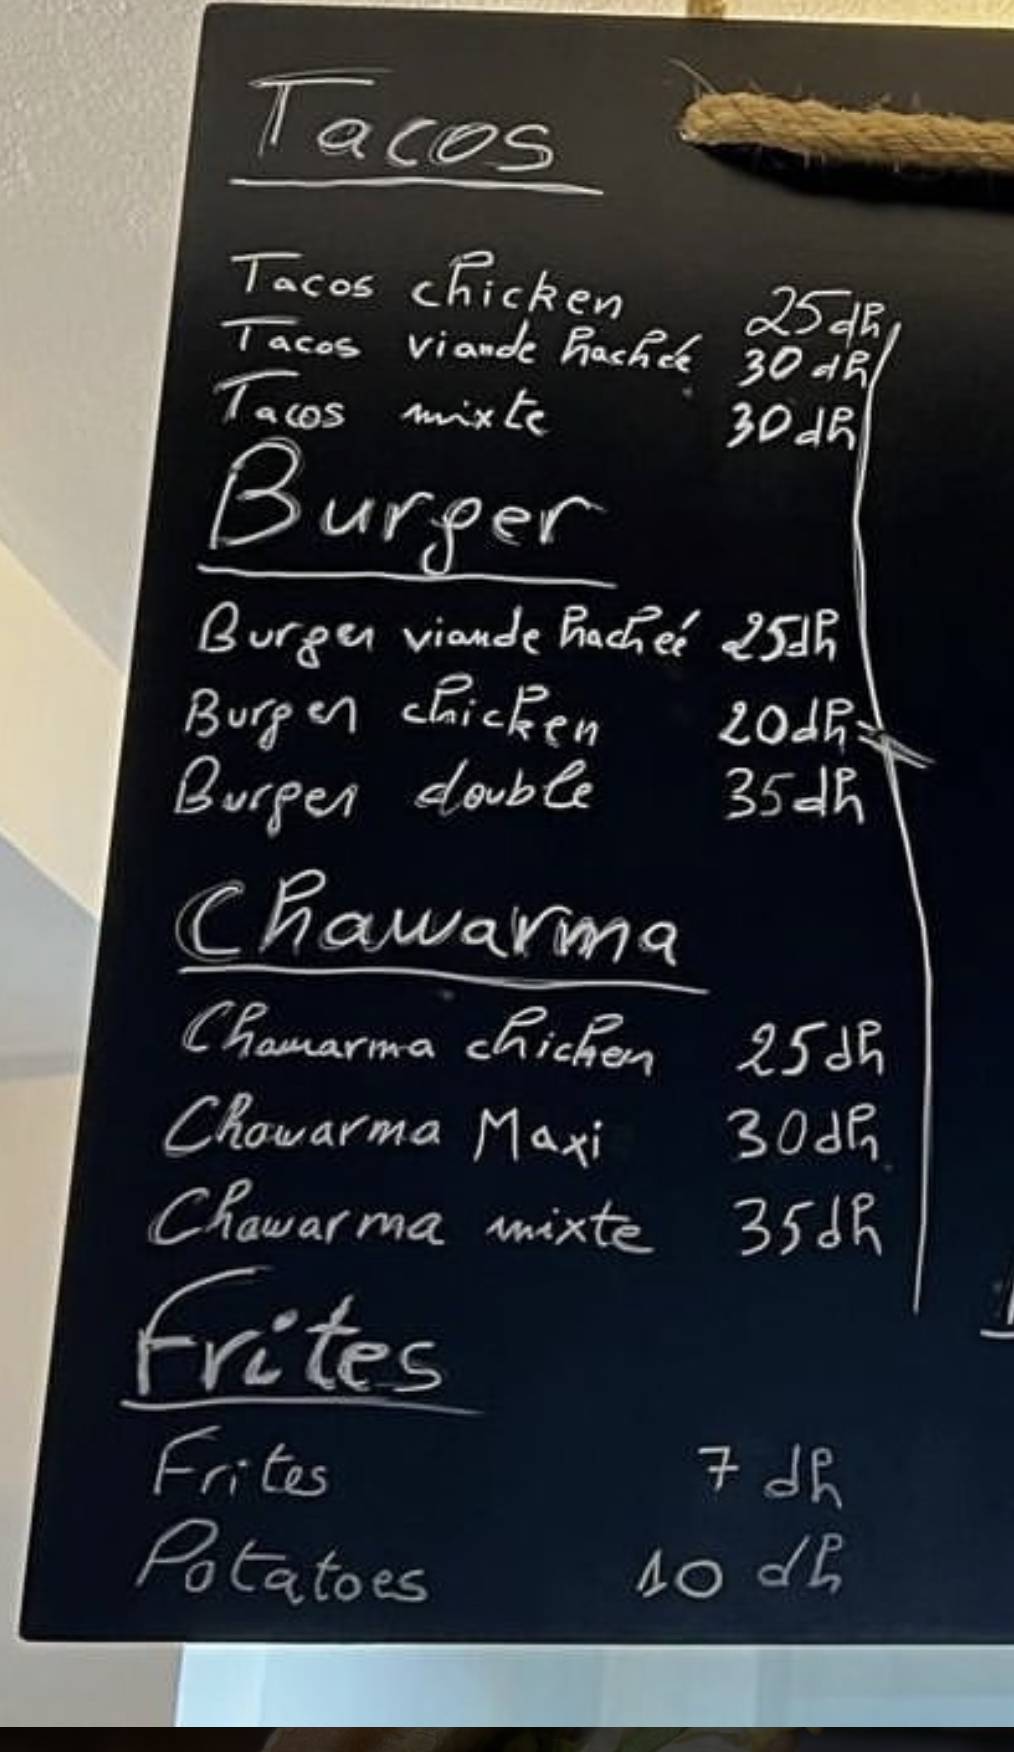 Tacos
Tacos chicken 25dh
Tacos viande hachée 30dh
Tacos mixte 30dh
Burger
Burger viande hacheé 25dh
Burger chicken 20dh
Burger double 35dh
Chawarma
Chawarma chicken 25dh
Chawarma Maxi 30dh
Chawarma mixte 35dh
Frites
Frites 7 dh
Potatoes 10 dh